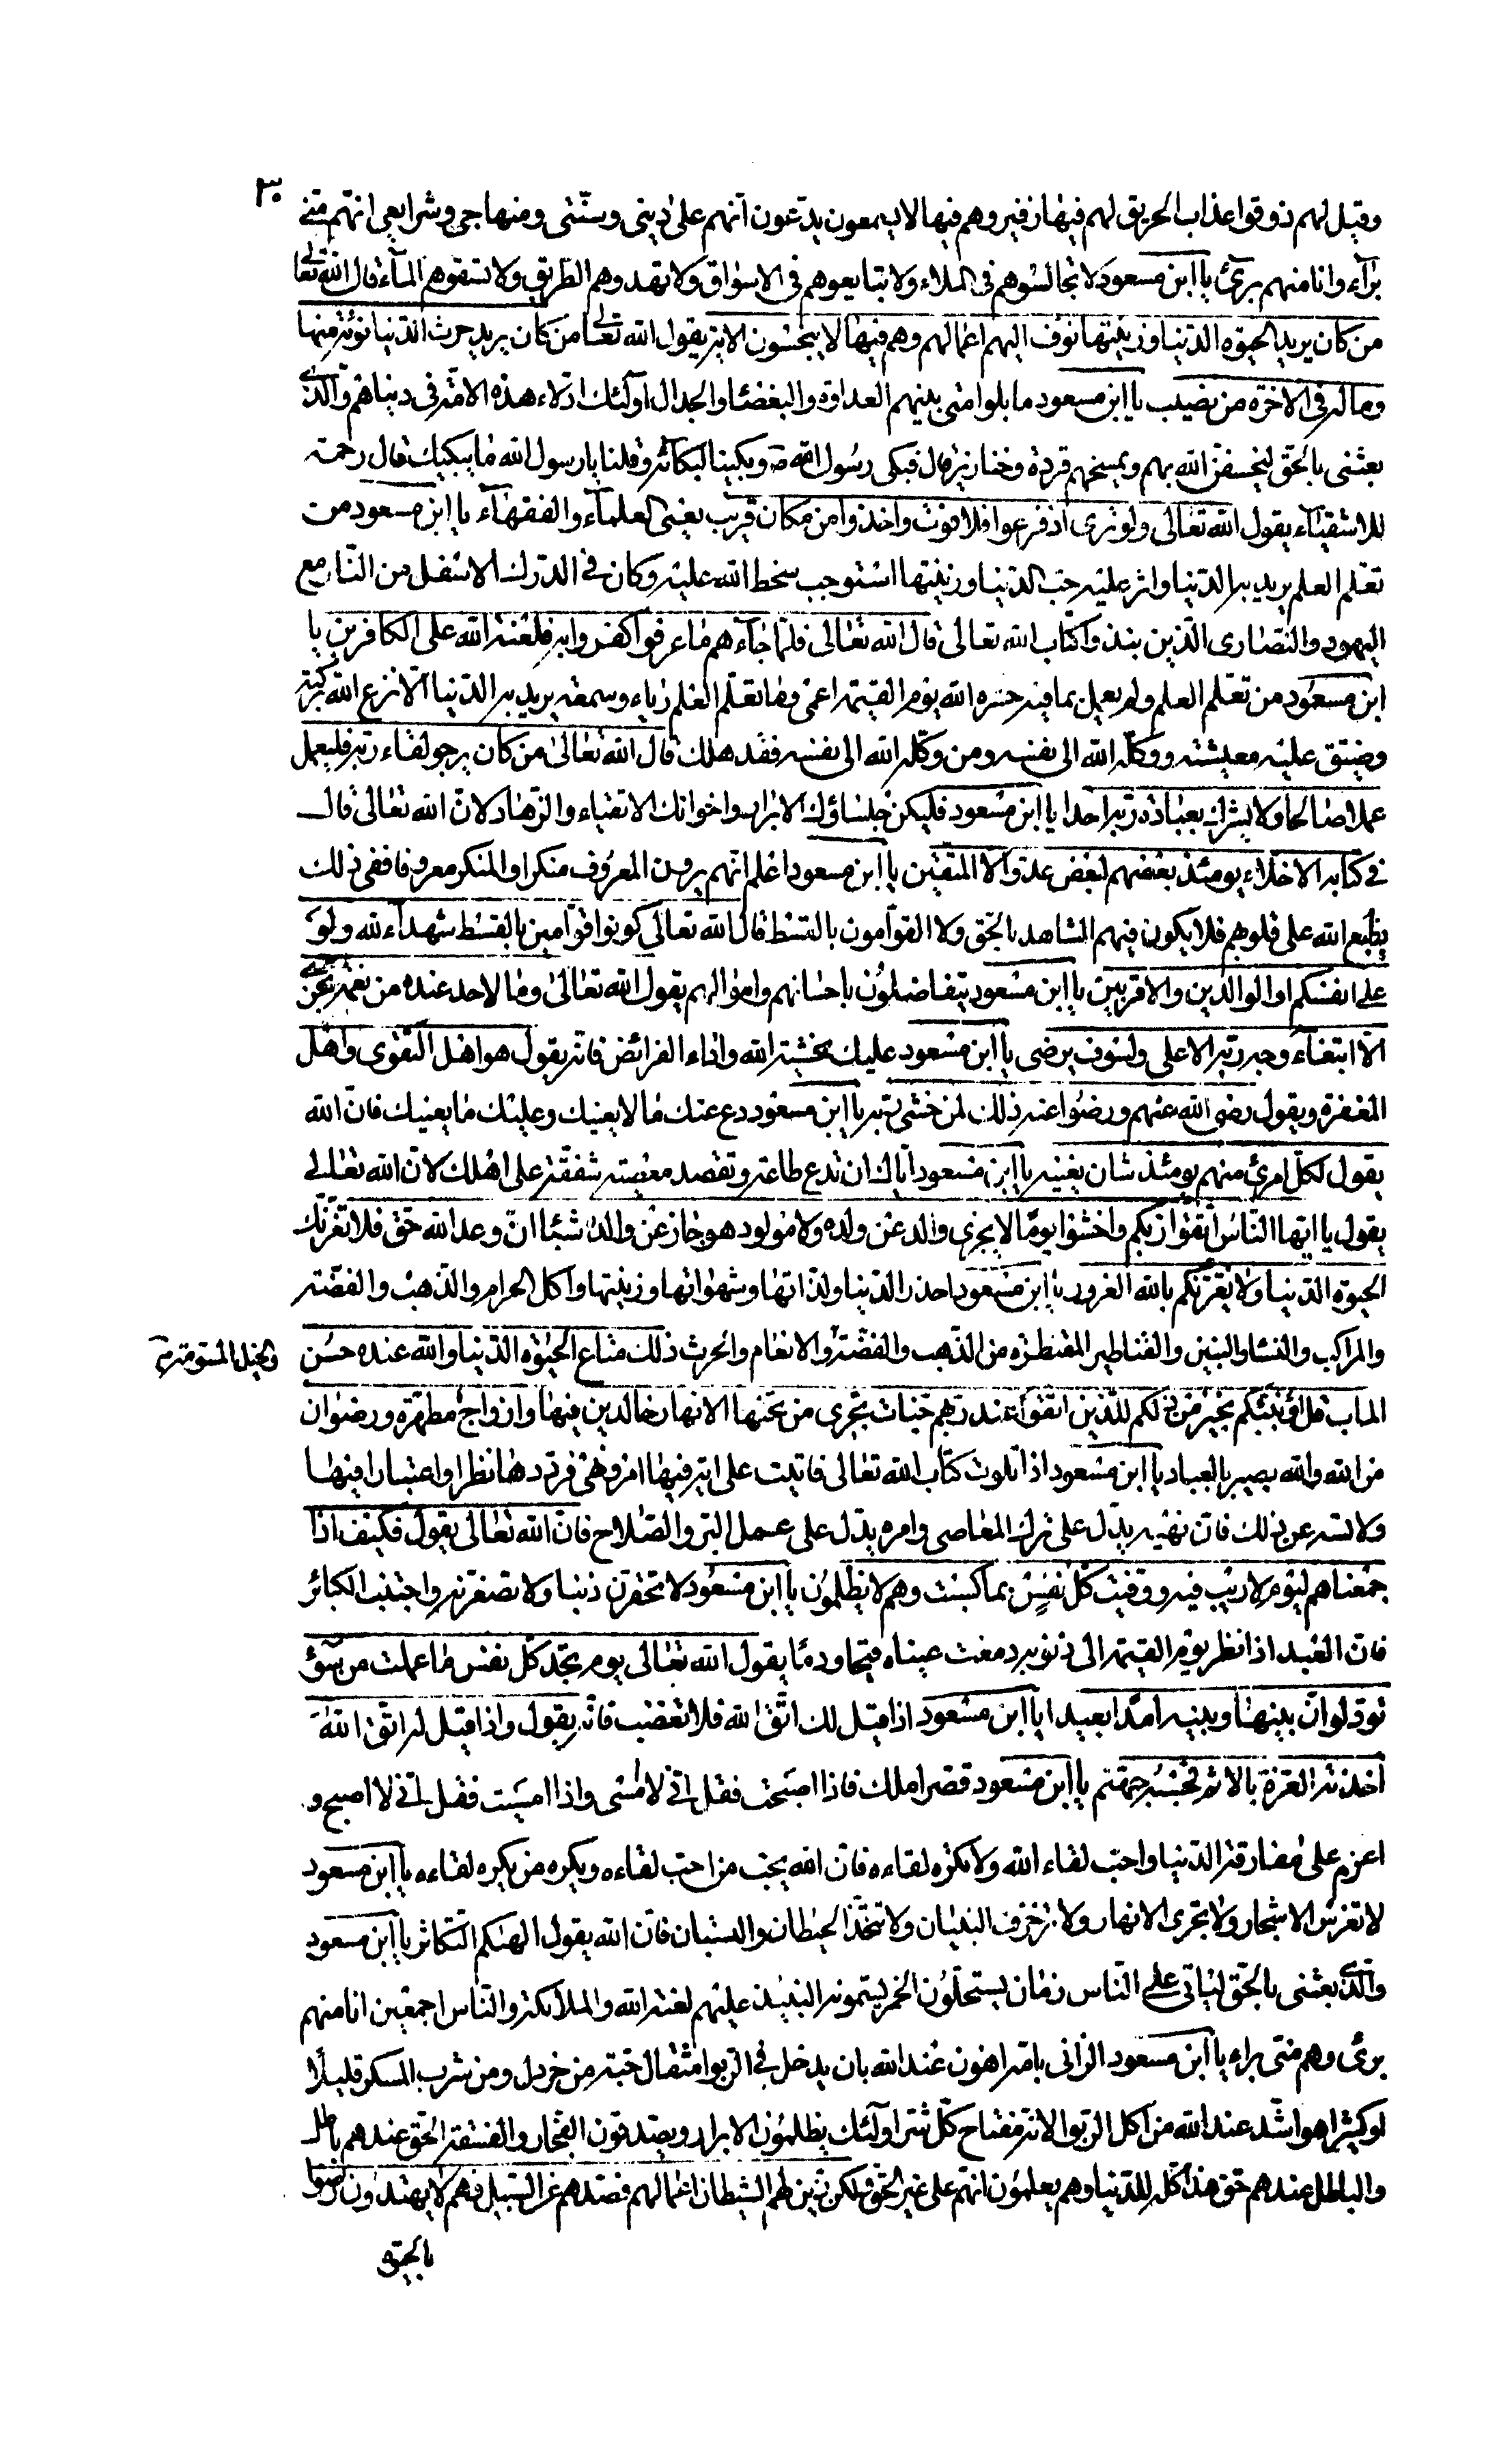 ٣٠
وقيل لهم ذوقوا عذاب الحريق لهم فيها زفير وهم فيها لا يسمعون يدّعون انّهم على ديني وسنّتي ومنهاجي وشرايعي انّهم منّي
برآء وانا منهم برئ يا ابن مسعود لا تجالسوهم في الملاء ولا تبايعوهم في الاسواق ولا تهدوهم الطّريق ولا تسقوهم المآء قال الله تعالى
من كان يريد الحيوة الدّنيا وزينتها نوفّ اليهم اعمالهم وهم فيها لا يبخسون الاية يقول الله تعالى من كان يريد حرث الدّنيا نؤته منها
وماله في الاخرة من نصيب يا ابن مسعود ما بلوا متى بينهم العداوة والبغضاء والجدال اولئك اذلاء هذه الامّة في دنياهم والّذي
بعثني بالحق ليخسفنّ الله بهم ويمسخهم قردة وخنازير قال فبكى رسول الله ص وبكينا لبكائه وقلنا يا رسول الله ما يبكيك قال رحمة
للاشقياء يقول الله تعالى ولو ترى اذ فزعوا فلا فوت واخذوا من مكان قريب يعني العلمآء والفقهآء يا ابن مسعود من
تعلّم العلم يريد به الدّنيا واثر عليه حبّ الدّنيا وزينتها استوجب سخط الله عليه وكان في الدّرك الاسفل من النّار مع
اليهود والنّصارى الّذين نبذوا كتاب الله تعالى قال الله تعالى فلمّا جآءهم ما عرفوا كفروا به فلعنة الله على الكافرين يا
ابن مسعود من تعلّم العلم ولم يعمل بما فيه حشره الله يوم القيمة اعمى وما تعلّم العلم رياء وسمعة يريد به الدّنيا الا نزع الله بركته
وضيّق عليه معيشته ووكّله الله الى نفسه ومن وكّله الله الى نفسه فقد هلك قال الله تعالى من كان يرجو لقاء ربّه فليعمل
عملا صالحا ولا يشرك بعبادة ربّه احدا يا ابن مسعود فليكن جلساؤك الابرار واخوانك الاتقياء والزّهاد لانّ الله تعالى قال
في كتابه الاخلّاء يومئذ بعضهم لبعض عدوّ الّا المتّقين يا ابن مسعود اعلم انّهم يرون المعروف منكرا والمنكر معروفا ففي ذلك
يطبع الله على قلوبهم فلا يكون فيهم الشاهد بالحّق ولا القوّامون بالقسط قال الله تعالى كونوا قوّامين بالقسط شهدآء لله ولو
على انفسكم او الوالدين والاقربين يا ابن مسعود يتفاضلون باحسابهم واموالهم يقول الله تعالى وما لاحد عنده من نعمة تجزى
الّا ابتغاء وجه ربّه الاعلى ولسوف يرضى يا ابن مسعود عليك بخشية الله واداء الفرائض فانّه يقول هو اهل التّقوى واهل
المغفرة ويقول رضى الله عنهم ورضوا عنه ذلك لمن خشى ربّه يا ابن مسعود دع عنك ما لا يعنيك وعليك ما يعنيك فانّ الله
يقول لكلّ امرئ منهم يومئذ شان يغنيه يا ابن مسعود ايّاك ان تدع طاعة وتقصد معصية شفقة على اهلك لانّ الله تعالى
يقول يا ايّها النّاس اتّقوا ربّكم واخشوا يومًا لا يجزى والد عن ولده ولا مولود هو جاز عن والده شيئا انّ وعد الله حقّ فلا تغرّنّك
الحيوة الدّنيا ولا يغرّنّكم بالله الغرور يا ابن مسعود احذر الدّنيا ولذّاتها وشهواتها وزينتها واكل الحرام والذّهب والفضّة
والمراكب والنّسا والبنين والقناطير المقنطرة من الذّهب والفضّة والانعام والحرث ذلك متاع الحيوة الدّنيا والله عنده حسن
والخيل المسوّمة م
المآب قل اؤنبّئكم بخير من ذلكم للّذين اتّقوا عند ربّهم جنّات تجري من تحتها الانهار خالدين فيها وازواج مطهّرة ورضوان
من الله والله بصير بالعباد يا ابن مسعود اذا تلوت كتاب الله تعالى فاتيت على اية فيها امر ونهى فردّدها نظرا واعتبارا فيها
ولا تسه عن ذلك فانّ نهيه يدّل على ترك المعاصي وامره يدّل على عمل البرّ والصّلاح فانّ الله تعالى يقول فكيف اذا
جمعناهم ليوم لا ريب فيه ووفّيت كلّ نفس بما كسبت وهم لا يظلمون يا ابن مسعود لا تحقرنّ ذنبا ولا تصغّرنّه واجتنب الكبائر
فانّ العبد اذا نظر يوم القيمة الى ذنوبه دمعت عيناه قيحا ودمًا يقول الله تعالى يوم تجد كلّ نفس ما عملت من سوء
تودّ لو انّ بينها وبينه امدًا بعيدا يا ابن مسعود اذا قيل لك اتّق الله فلا تغضب فانّه يقول واذا قيل له اتّق الله
اخذته العزّة بالاثم فحسبه جهنّم يا ابن مسعود قصّر املك فاذا اصبحت فقل انّي لا امسى واذا امسيت فقل انّي لا اصبح و
اعزم على مفارقة الدّنيا واحبّ لقاء الله ولا تكره لقاءه فانّ الله يحبّ من احبّ لقاءه ويكره من يكره لقاءه يا ابن مسعود
لا تغرس الاشجار ولا تجرى الانهار ولا تزخرف البنيان ولا تتّخذ الحيطان والبستان فانّ الله يقول الهيكم التّكاثر يا ابن مسعود
والّذي بعثني بالحّق ليأتي على النّاس زمان يستحلّون الخمر يسمّونه النبيذ عليهم لعنة الله والملائكة والنّاس اجمعين انا منهم
برئ وهم منّي براء يا ابن مسعود الزّاني بامّه اهون عند الله بان يدخل في الرّبوا مثقال حبّة من خردل ومن شرب المسكر قليلًا
او كثيرا هو اشدّ عند الله من آكل الرّبوا لانّه مفتاح كلّ شرّ اولئك يظلمون الابرار ويصدّقون الفجّار والفسقة الحّق عندهم باطل
والباطل عندهم حّق هذا كلّه للدّنيا وهم يعلمون انّهم على غير الحّق ولكن زيّن لهم الشيطان اعمالهم فصدّهم عن السّبيل فهم لا يهتدون رضوا
بالحيوة